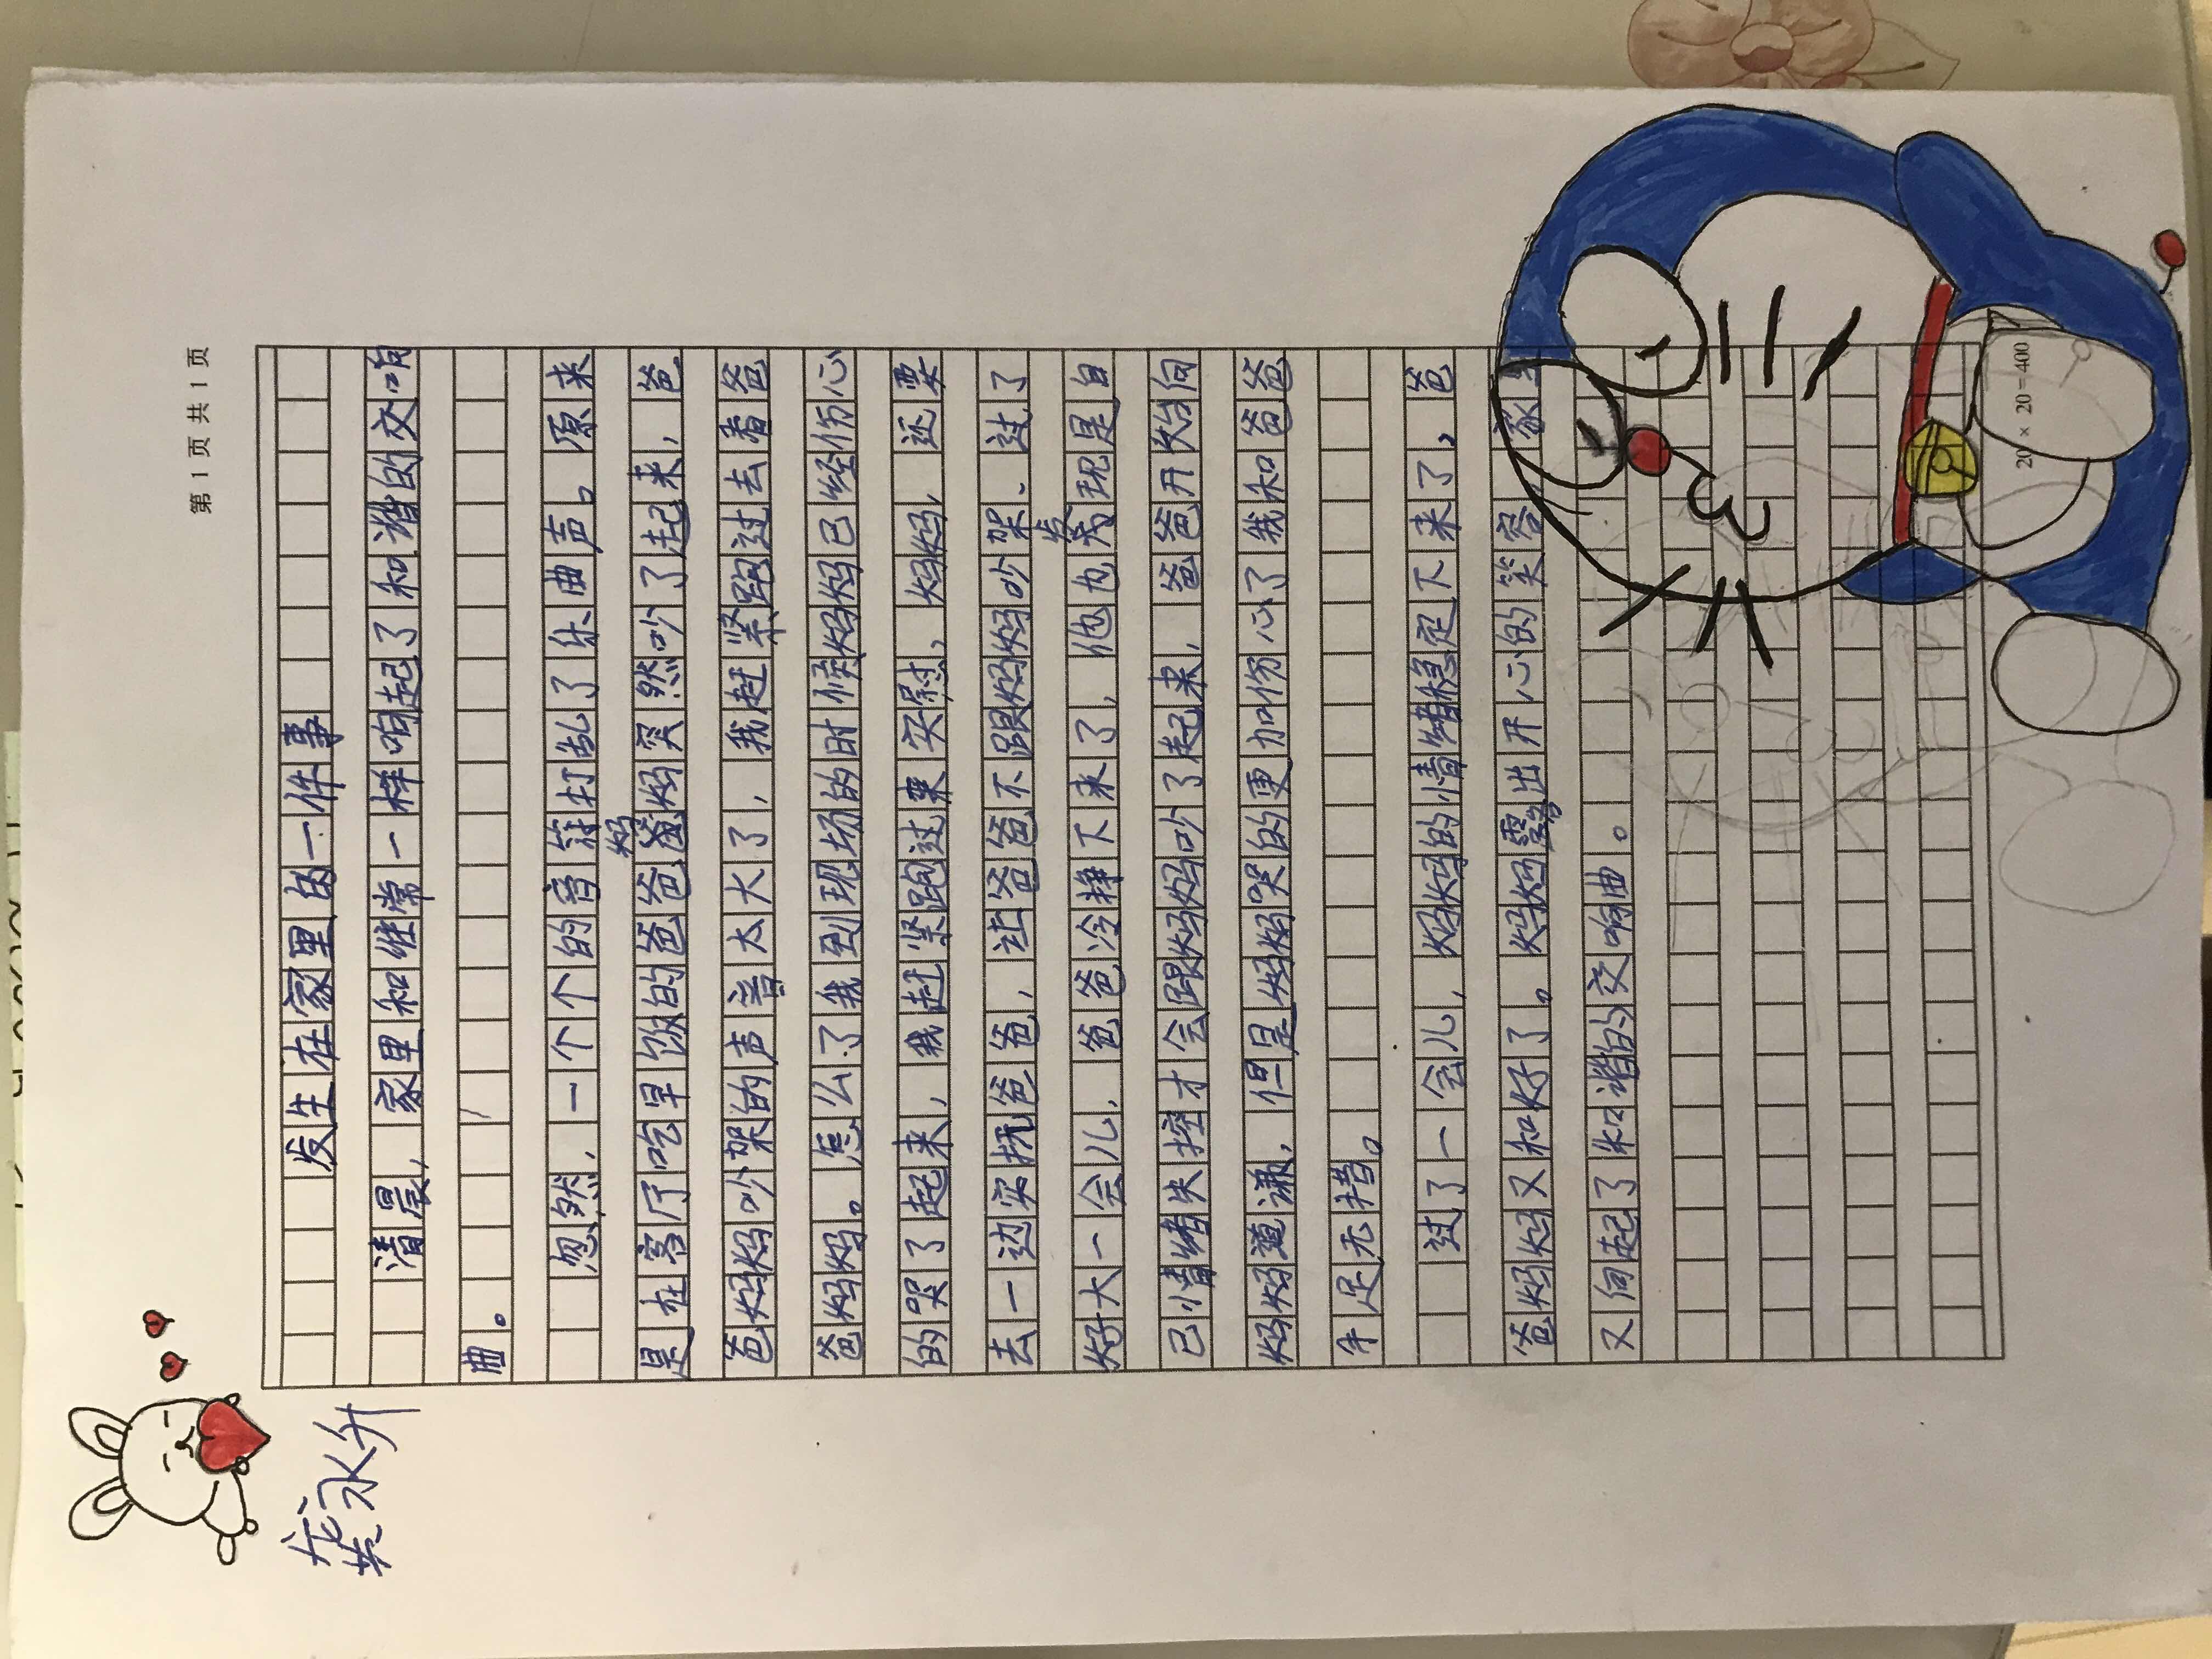 第 1 页 共 1 页
龚永升
发生在家里的一件事
清晨，家里和往常一样响起了和谐的交响
曲。
忽然，一个个的音符打乱了乐曲声。原来
是在客厅吃早饭的爸爸妈妈突然吵了起来，爸
爸妈妈吵架的声音太大了，我赶紧跑过去看爸
爸妈妈。怎么了我到现场的时候妈妈已经伤心
的哭了起来，我赶紧跑过来安慰，妈妈，还要
去一边安抚爸爸，让爸爸不跟妈妈吵架、过了
好大一会儿，爸爸冷静下来了，他也发现是自
己情绪失控才会跟妈妈吵了起来，爸爸开始向
妈妈道谦，但是妈妈哭的更加伤心了我和爸爸
手足无措。
过了一会儿，妈妈的情绪稳定下来了，爸
爸妈妈又和好了。妈妈露出开心的笑容 家里
又向起了和谐的交响曲。
20 × 20 = 400